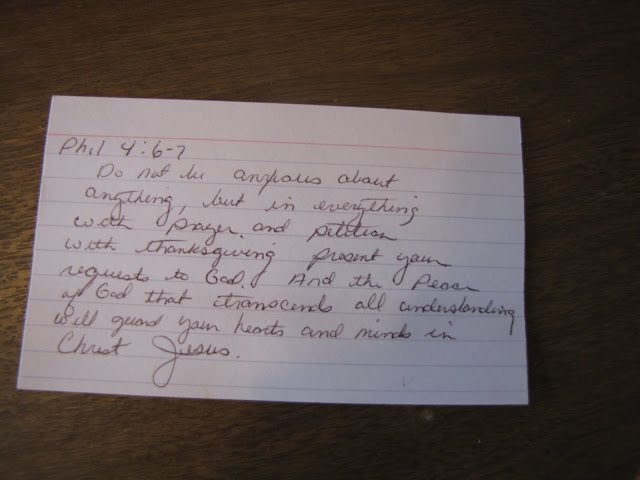 Phil 4:6-7
Do not be anxious about
anything, but in everything
with prayer and petition
with thanksgiving present your
requests to God. And the Peace
of God that transcends all understanding
will guard your hearts and minds in
Christ Jesus.